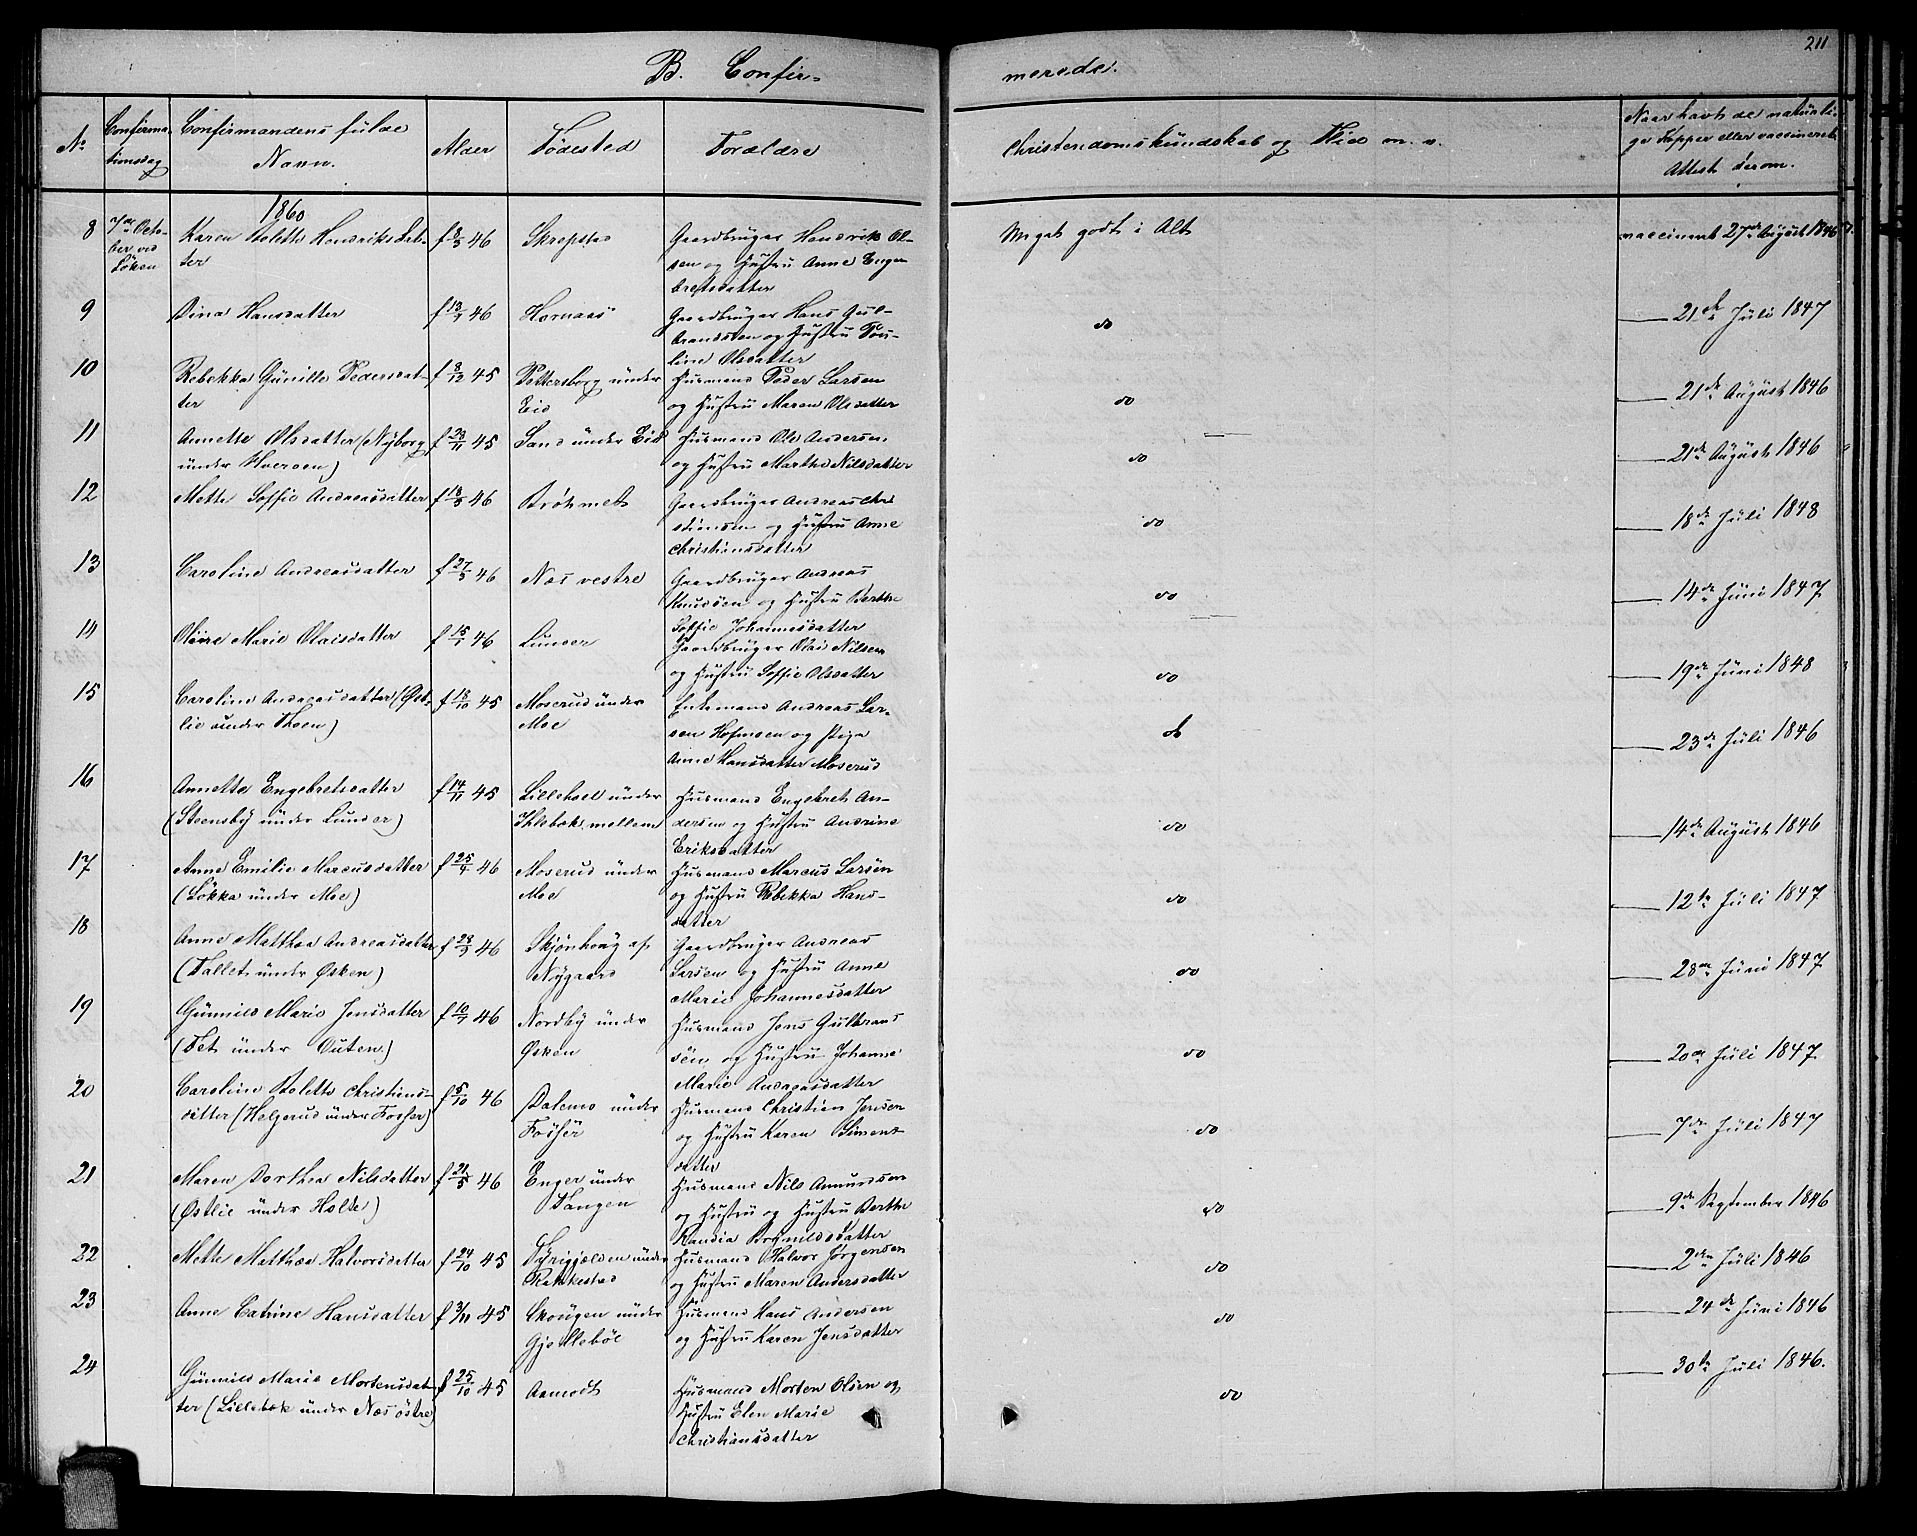 211
B. Confir-
merede.
No
Confirma-
tionsdag
Confirmandens fulde
Navn.
Alder
Födested
Forældre
Christendomskundskab og Flid m. v.
Naar havt de naturli-
ge Kopper eller vaccineret
Attest derom.
1860
8
7de Octo-
ber ved
Löken
Karen Bolette Hendriksdat-
ter
f 8/5 46
Skrepstad
Gaardbruger Hendrik Ol-
sen og Hustru Anne Enge-
bretsdatter
Meget godt i Alt
vaccineret 27de August 1846
9
Dina Hansdatter
f 13/7 46
Hornaas
Gaardbruger Hans Gul-
brandsen og Hustru Pou-
line Olsdatter
do
21de Juli 1847
10
Rebekka Gunille Pedersdat-
ter
f 8/12 45
Pettersborg under
Eid
Husmand Peder Larsen
og Hustru Maren Olsdatter
do
21de August 1846
11
Annette Olsdatter (Nyborg
under Hværven)
f 23/11 45
Sand under Eid
Husmand Ole Andersen
og Hustru Marthe Nilsdatter
do
21de August 1846
12
Mette Soffie Andreasdatter
f 18/5 46
Bröhmelt
Gaardbruger Andreas Chri
stiansen og Hustru Anne
Christiansdatter
do
18de Juli 1848
13
Caroline Andreasdatter
f 27/5 46
Næs vestre
Gaardbruger Andreas
Knudsöen og Hustru Berthe
Soffie Johannesdatter
do
14de Juni 1847
14
Oline Marie Olaisdatter
f 15/1 46
Lunder
Gaardbruger Olai Nilsen
og Hustru Soffie Olsdatter
do
19de Juni 1848
15
Caroline Andreasdatter (Øst-
lie under Thoen)
f 18/10 45
Moserud under
Moe
Enkemand Andreas Lar-
sen Hofmoen og Pige
Anne Hansdatter Moserud
do
23de Juli 1846
16
Annette Engebretsdatter
(Steensby under Lunder)
f 14/11 45
Lillehoel under
Ihlebæk mellem
Husmand Engebret An-
dersen og Hustru Andrine
Eriksdatter
do
14de August 1846
17
Anne Emilie Marcusdatter
(Lökka under Moe)
f 25/4 46
Moserud under
Moe
Husmand Marcus Larsen
og Hustru Rebekka Hans-
datter
do
12te Juli 1847
18
Anne Matthea Andreasdatter
(Tallet under Øsken)
f 23/3 46
Skjönhoug af
Nygaard
Gaardbruger Andreas
Larsen og Hustru Anne
Marie Johannesdatter
do
28de Juni 1847
19
Gunnild Marie Jensdatter
(Tet under Outen)
f 10/7 46
Nordby under
Øsken
Husmand Jens Gulbrand
sen og Hustru Johanne
Marie Andreasdatter
do
20de Juli 1847
20
Caroline Bolette Christians-
datter (Helgerud under Fosser)
f 5/10 46
Dalemo under
Fossör
Husmand Christian Jensen
og Hustru Karen Simens-
datter
do
7de Juli 1847
21
Maren Dorthea Nilsdatter
(Østlie under Holte)
f 21/5 46
Enger under
Tangen
Husmand Nils Amundsen
og Hustru og Hustru Berthe
Randia Brynildsdatter
do
9de September 1846
22
Mette Matthea Halvorsdatter
f 24/10 45
Tyrigjelden under
Rakkestad
Husmand Halvor Jörgensen
og Hustru Maren Andersdatter
do
2den Juli 1846
23
Anne Catrine Hansdatter
f 3/11 45
Skougen under
Gjellebøl
Husmand Hans Andersen
og Hustru Karen Jensdatter
do
24de Juni 1846
24
Gunnild Marie Mortensdat-
ter (Lillebæk under Næs östre)
f 25/10 45
Aamodt
Husmand Morten Olsen og
Hustru Elen Marie
Christiansdatter
do
30te Juli 1846.